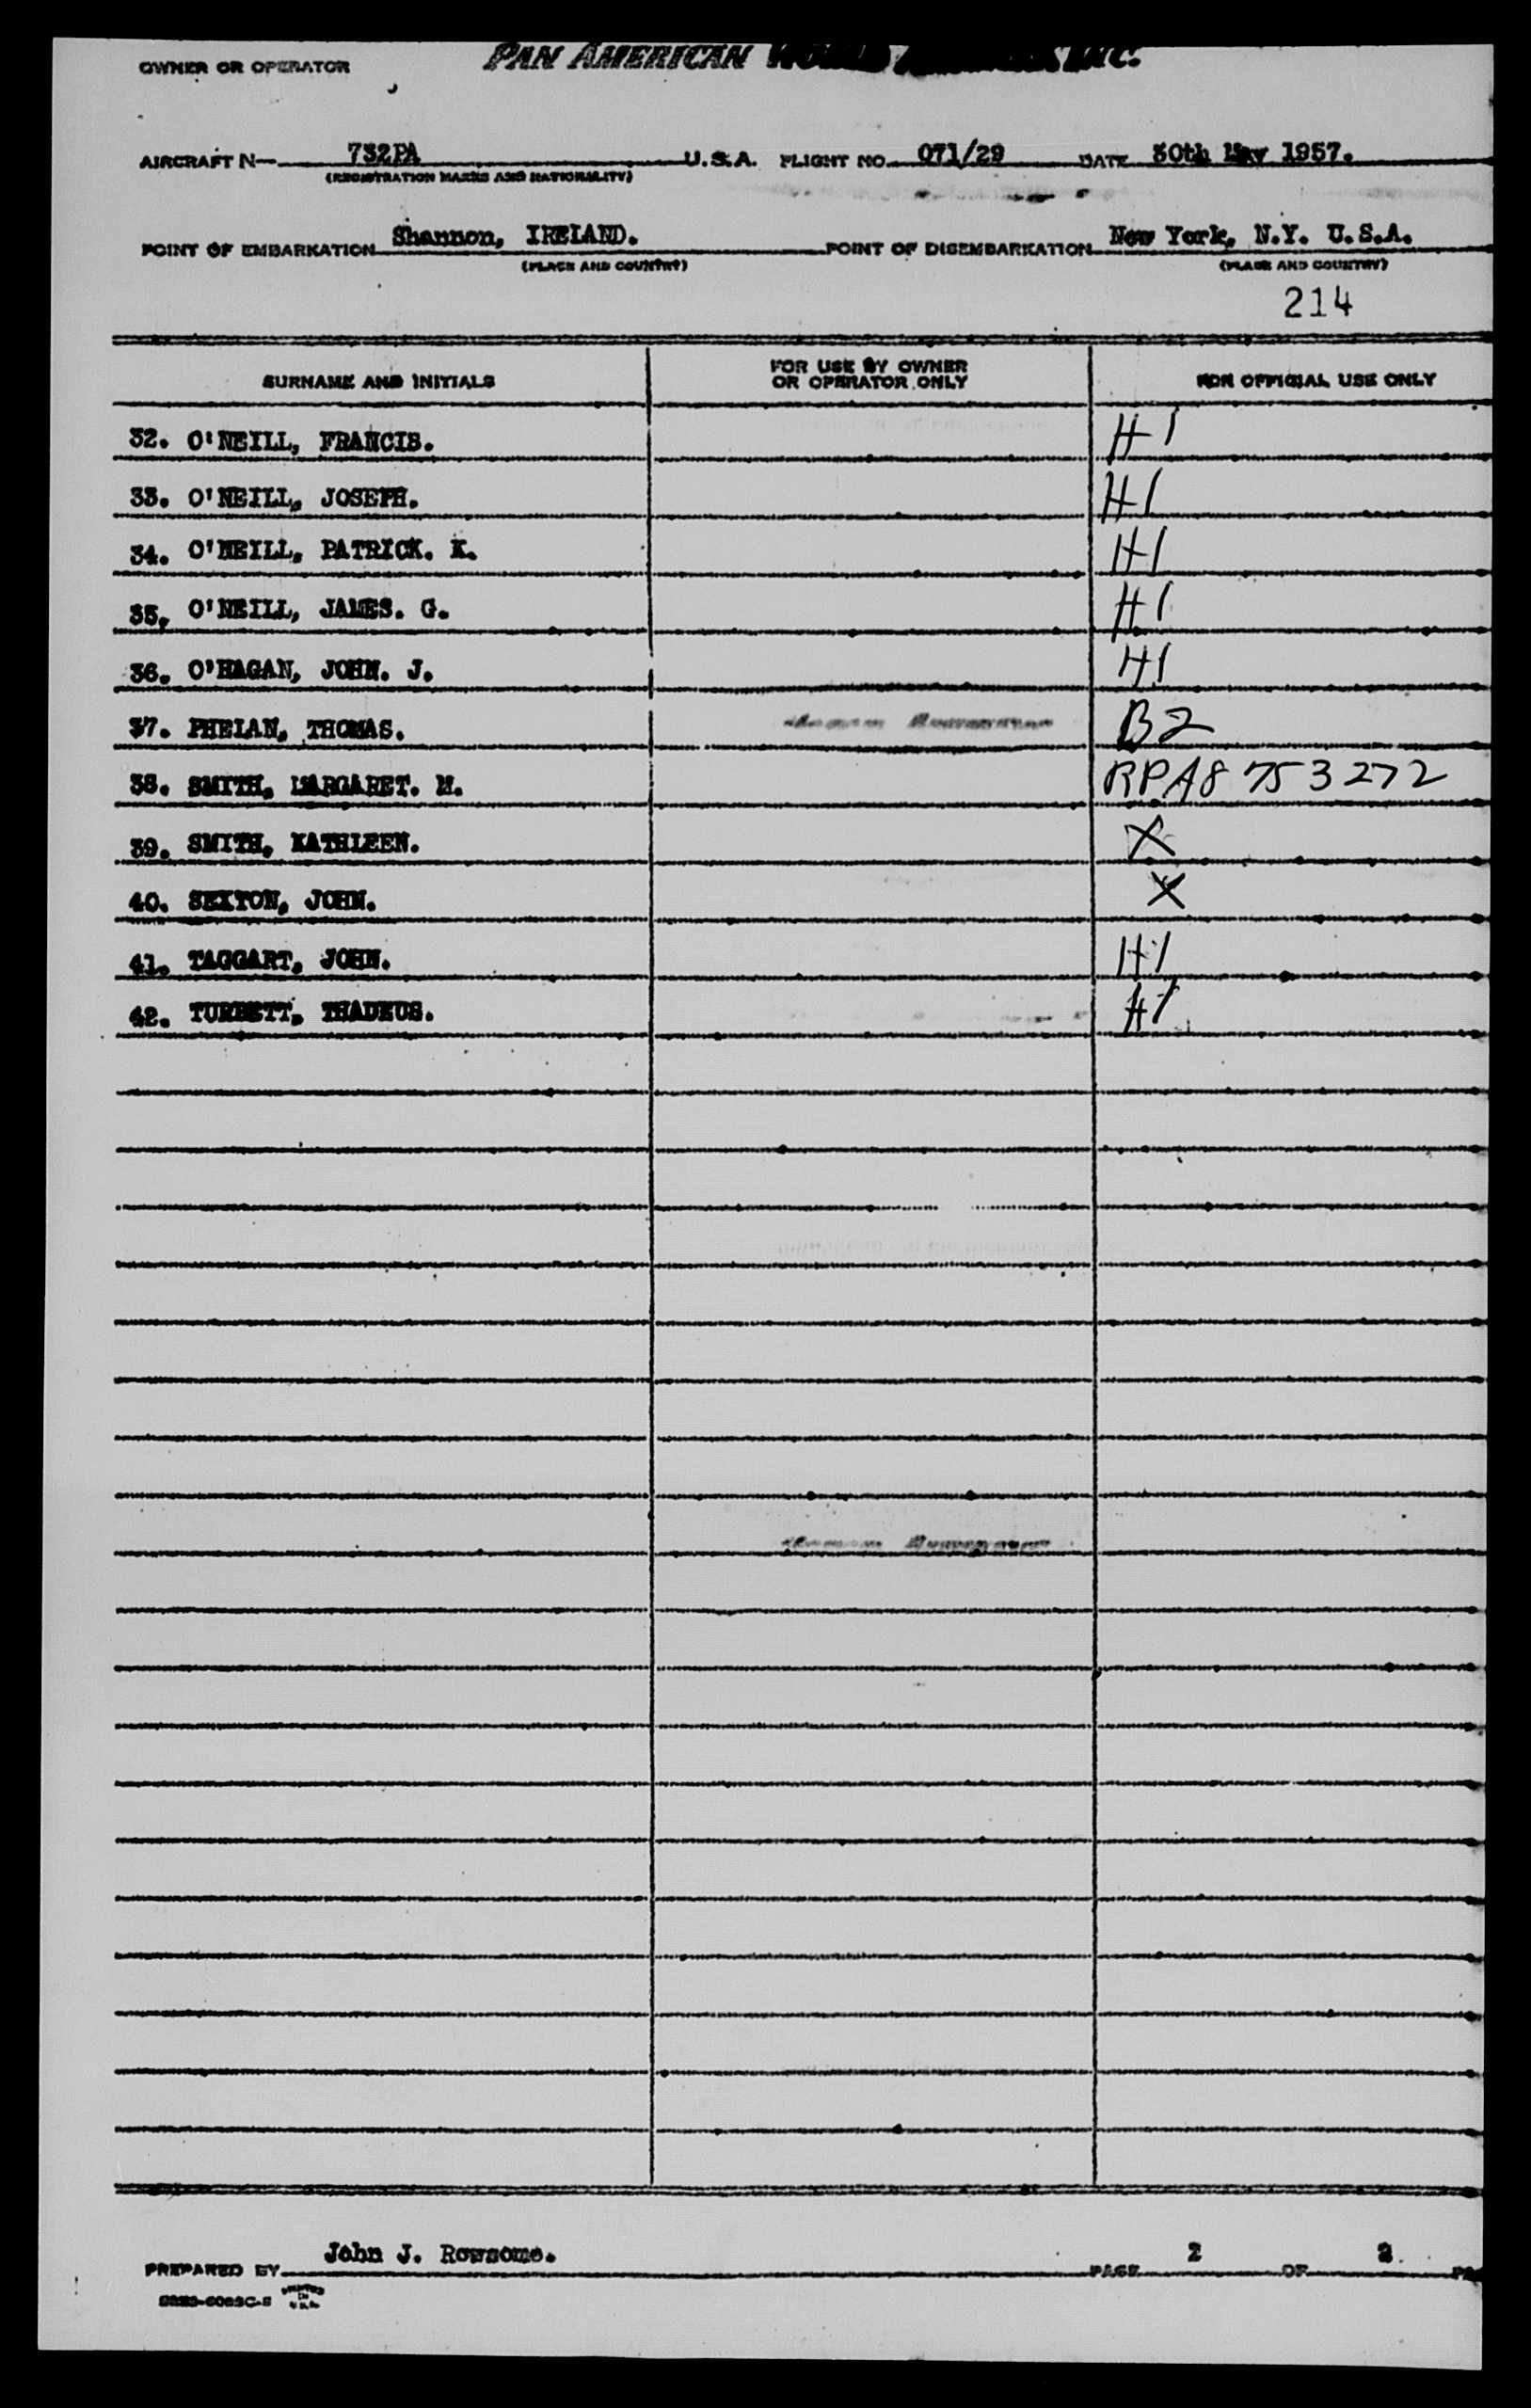 OWNER OR OPERATOR PAN AMERICAN WORLD AIRWAYS INC.
AIRCRAFT N— 732PA U.S.A. FLIGHT NO. 071/29 DATE 30th May 1957.
(REGISTRATION MARKS AND NATIONALITY)
POINT OF EMBARKATION Shannon, IRELAND. POINT OF DISEMBARKATION New York, N.Y. U.S.A.
(PLACE AND COUNTRY) (PLACE AND COUNTRY)
214
SURNAME AND INITIALS FOR USE BY OWNER OR OPERATOR ONLY FOR OFFICIAL USE ONLY
32. O'NEILL, FRANCIS. H1
33. O'NEILL, JOSEPH. H1
34. O'NEILL, PATRICK. K. H1
35. O'NEILL, JAMES. G. H1
36. O'HAGAN, JOHN. J. H1
37. PHELAN, THOMAS. B2
38. SMITH, MARGARET. M. RPA8 753272
39. SMITH, KATHLEEN. X
40. SEXTON, JOHN. X
41. TAGGART, JOHN. H1
42. TURBETT, THADEUS. H1
PREPARED BY John J. Rowsome. PAGE 2 OF 2
PRINTED
IN